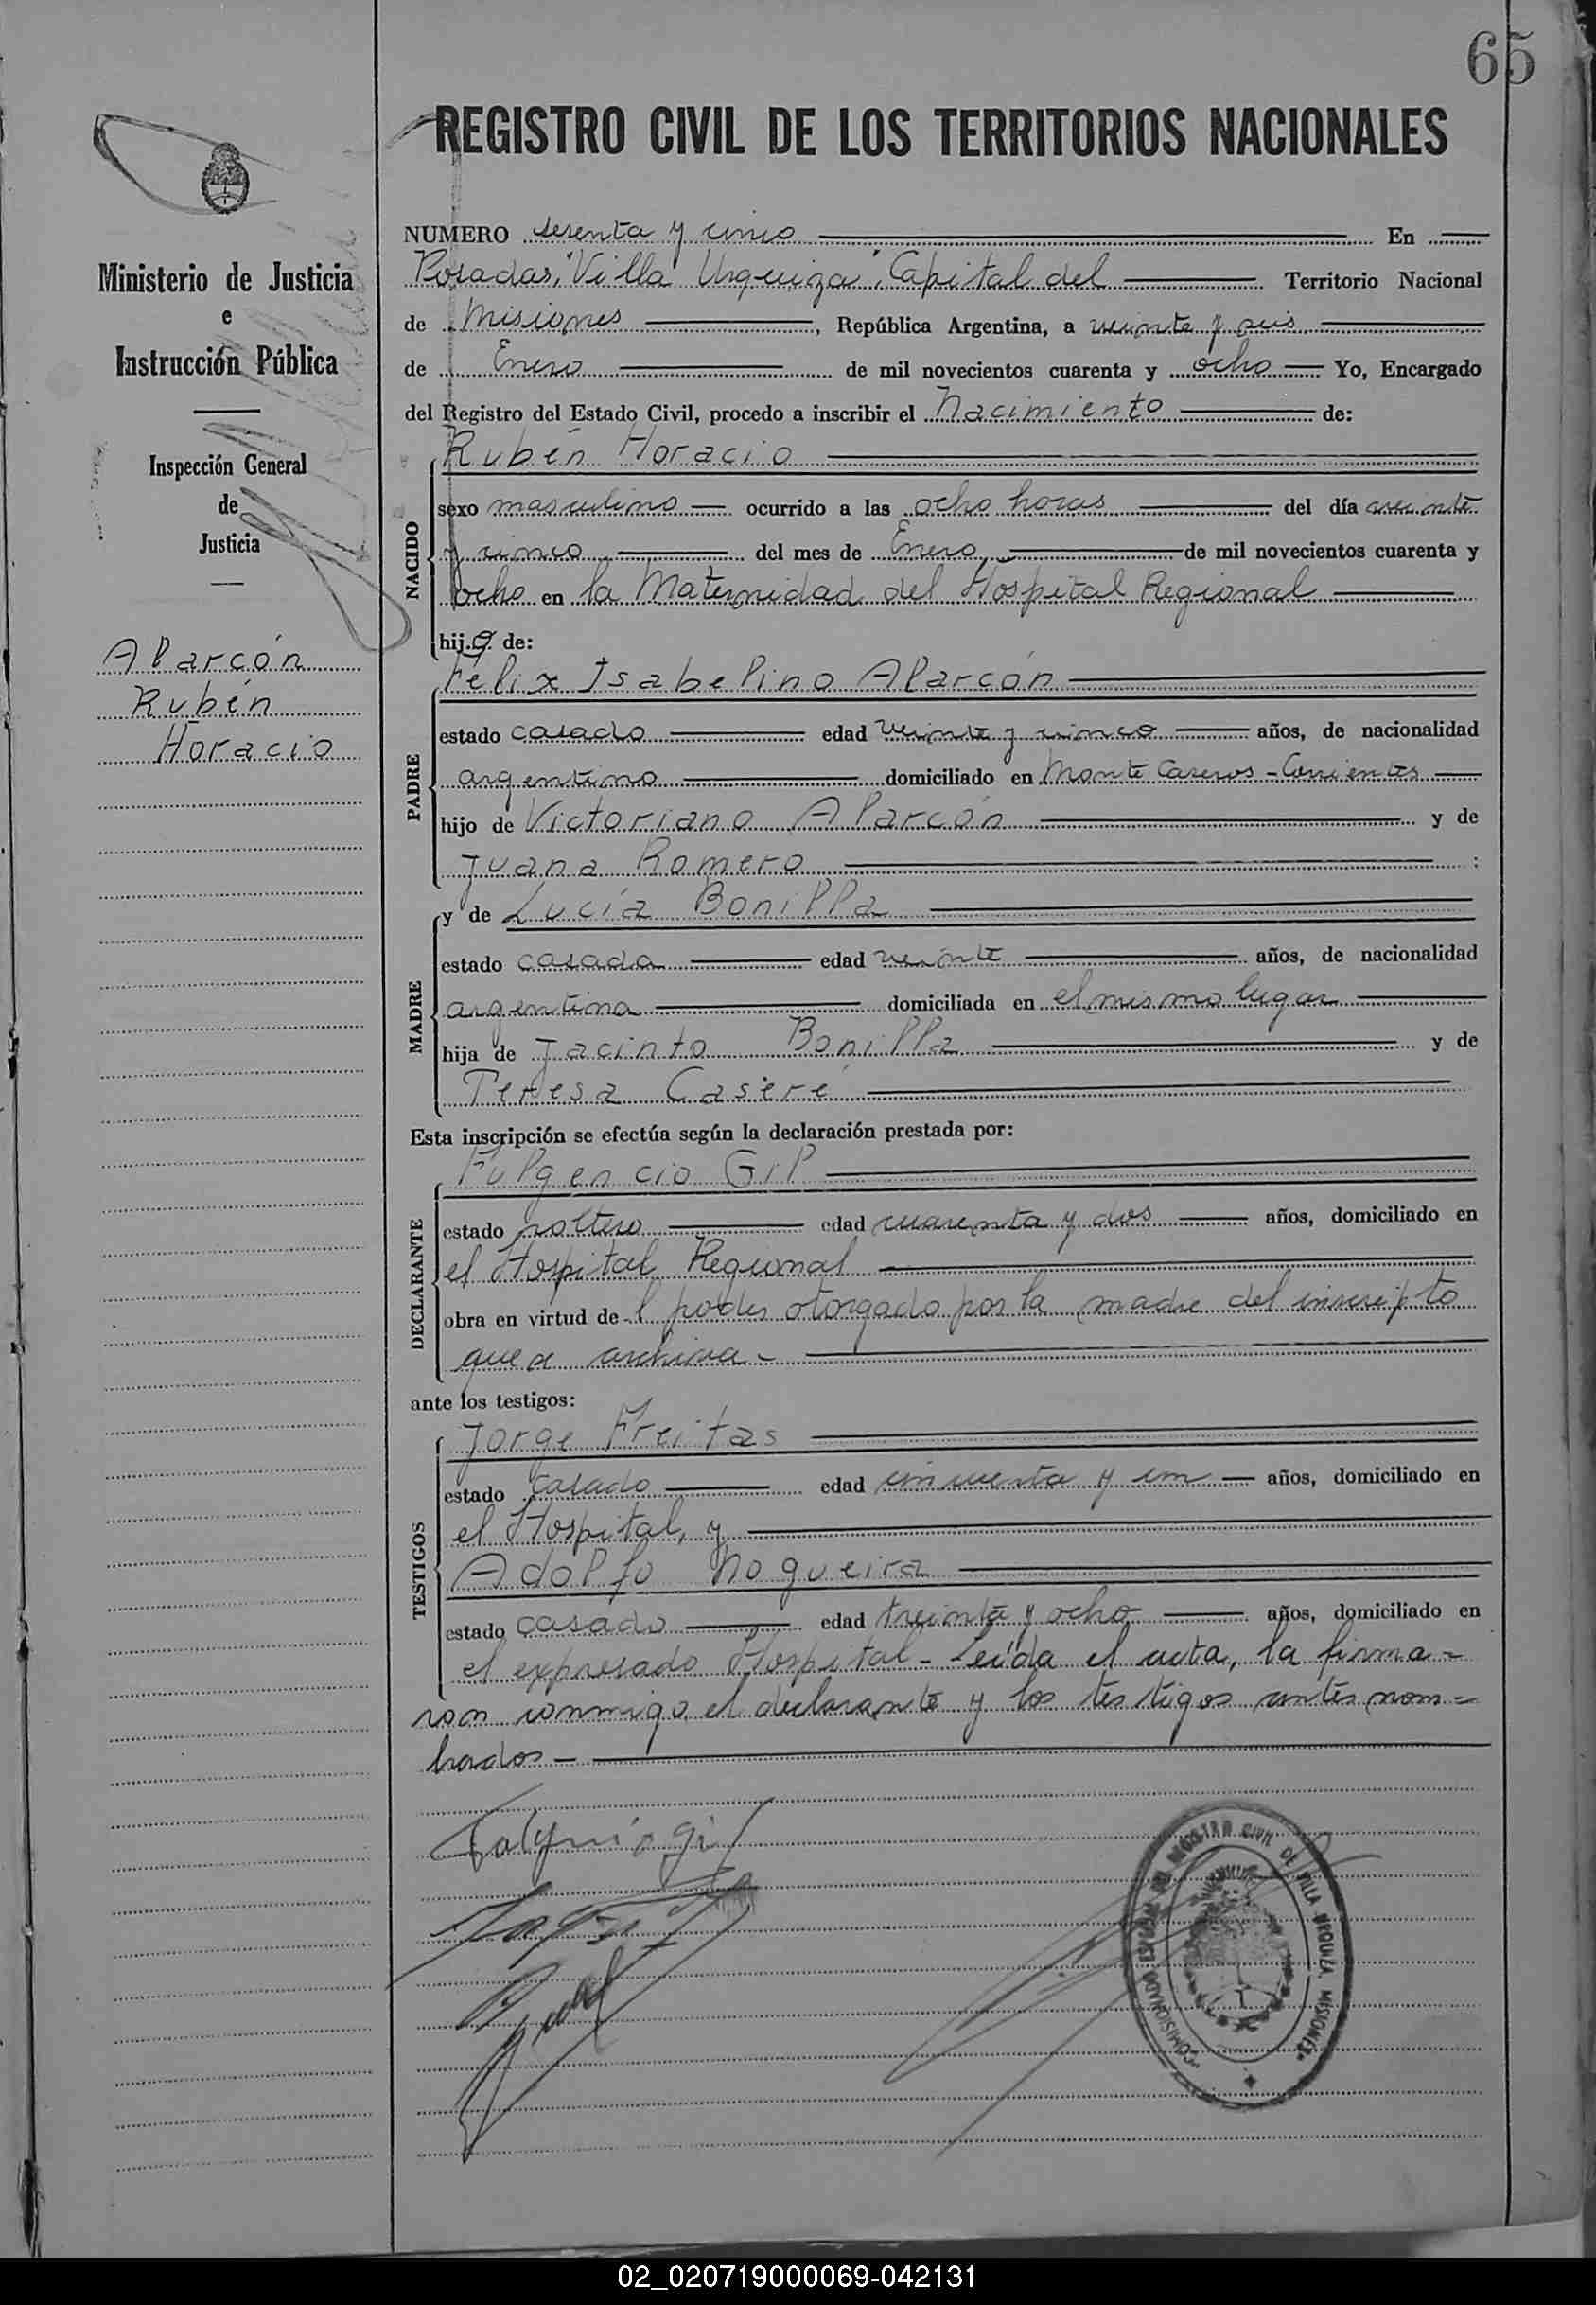 65
REGISTRO CIVIL DE LOS TERRITORIOS NACIONALES
Ministerio de Justicia
e
Instrucción Pública
Inspección General
de
Justicia
Alarcón
Rubén
Horacio
NUMERO sesenta y cinco En
Posadas, "Villa Urquiza", Capital del Territorio Nacional
de Misiones, República Argentina, a veinte y seis
de Enero de mil novecientos cuarenta y ocho Yo, Encargado
del Registro del Estado Civil, procedo a inscribir el Nacimiento de:
Rubén Horacio
NACIDO
sexo masculino ocurrido a las ocho horas del día veinte
y cinco del mes de Enero de mil novecientos cuarenta y
ocho en la Maternidad del Hospital Regional
hijo de:
Félix Isabelino Alarcón
PADRE
estado casado edad veinte y cinco años, de nacionalidad
argentino domiciliado en Monte Caseros - Corrientes
hijo de Victoriano Alarcón y de
Juana Romero :
y de Lucía Bonilla
MADRE
estado casada edad veinte años, de nacionalidad
argentina domiciliada en el mismo lugar
hija de Jacinto Bonilla y de
Teresa Casere
Esta inscripción se efectúa según la declaración prestada por:
Fulgencio Gil
DECLARANTE
estado soltero edad cuarenta y dos años, domiciliado en
el Hospital Regional
obra en virtud de l poder otorgado por la madre del inscripto
que se archiva -
ante los testigos:
Jorge Freitas
TESTIGOS
estado casado edad cincuenta y un años, domiciliado en
el Hospital, y
Adolfo Nogueira
estado casado edad treinta y ocho años, domiciliado en
el expresado Hospital - Leída el acta, la firma=
ron conmigo el declarante y los testigos antes nom=
brados -
COMISIONADO ESPECIAL DEL REGISTRO CIVIL DE VILLA URQUIZA, MISIONES
02_020719000069-042131